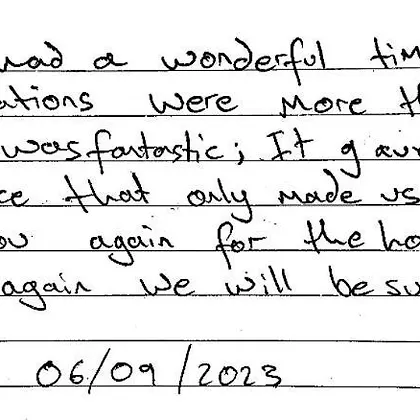 had a wonderful tim
ations were more th
was fantastic; It gav
ce that only made us
ou again for the ho
again we will be su
06/09/2023